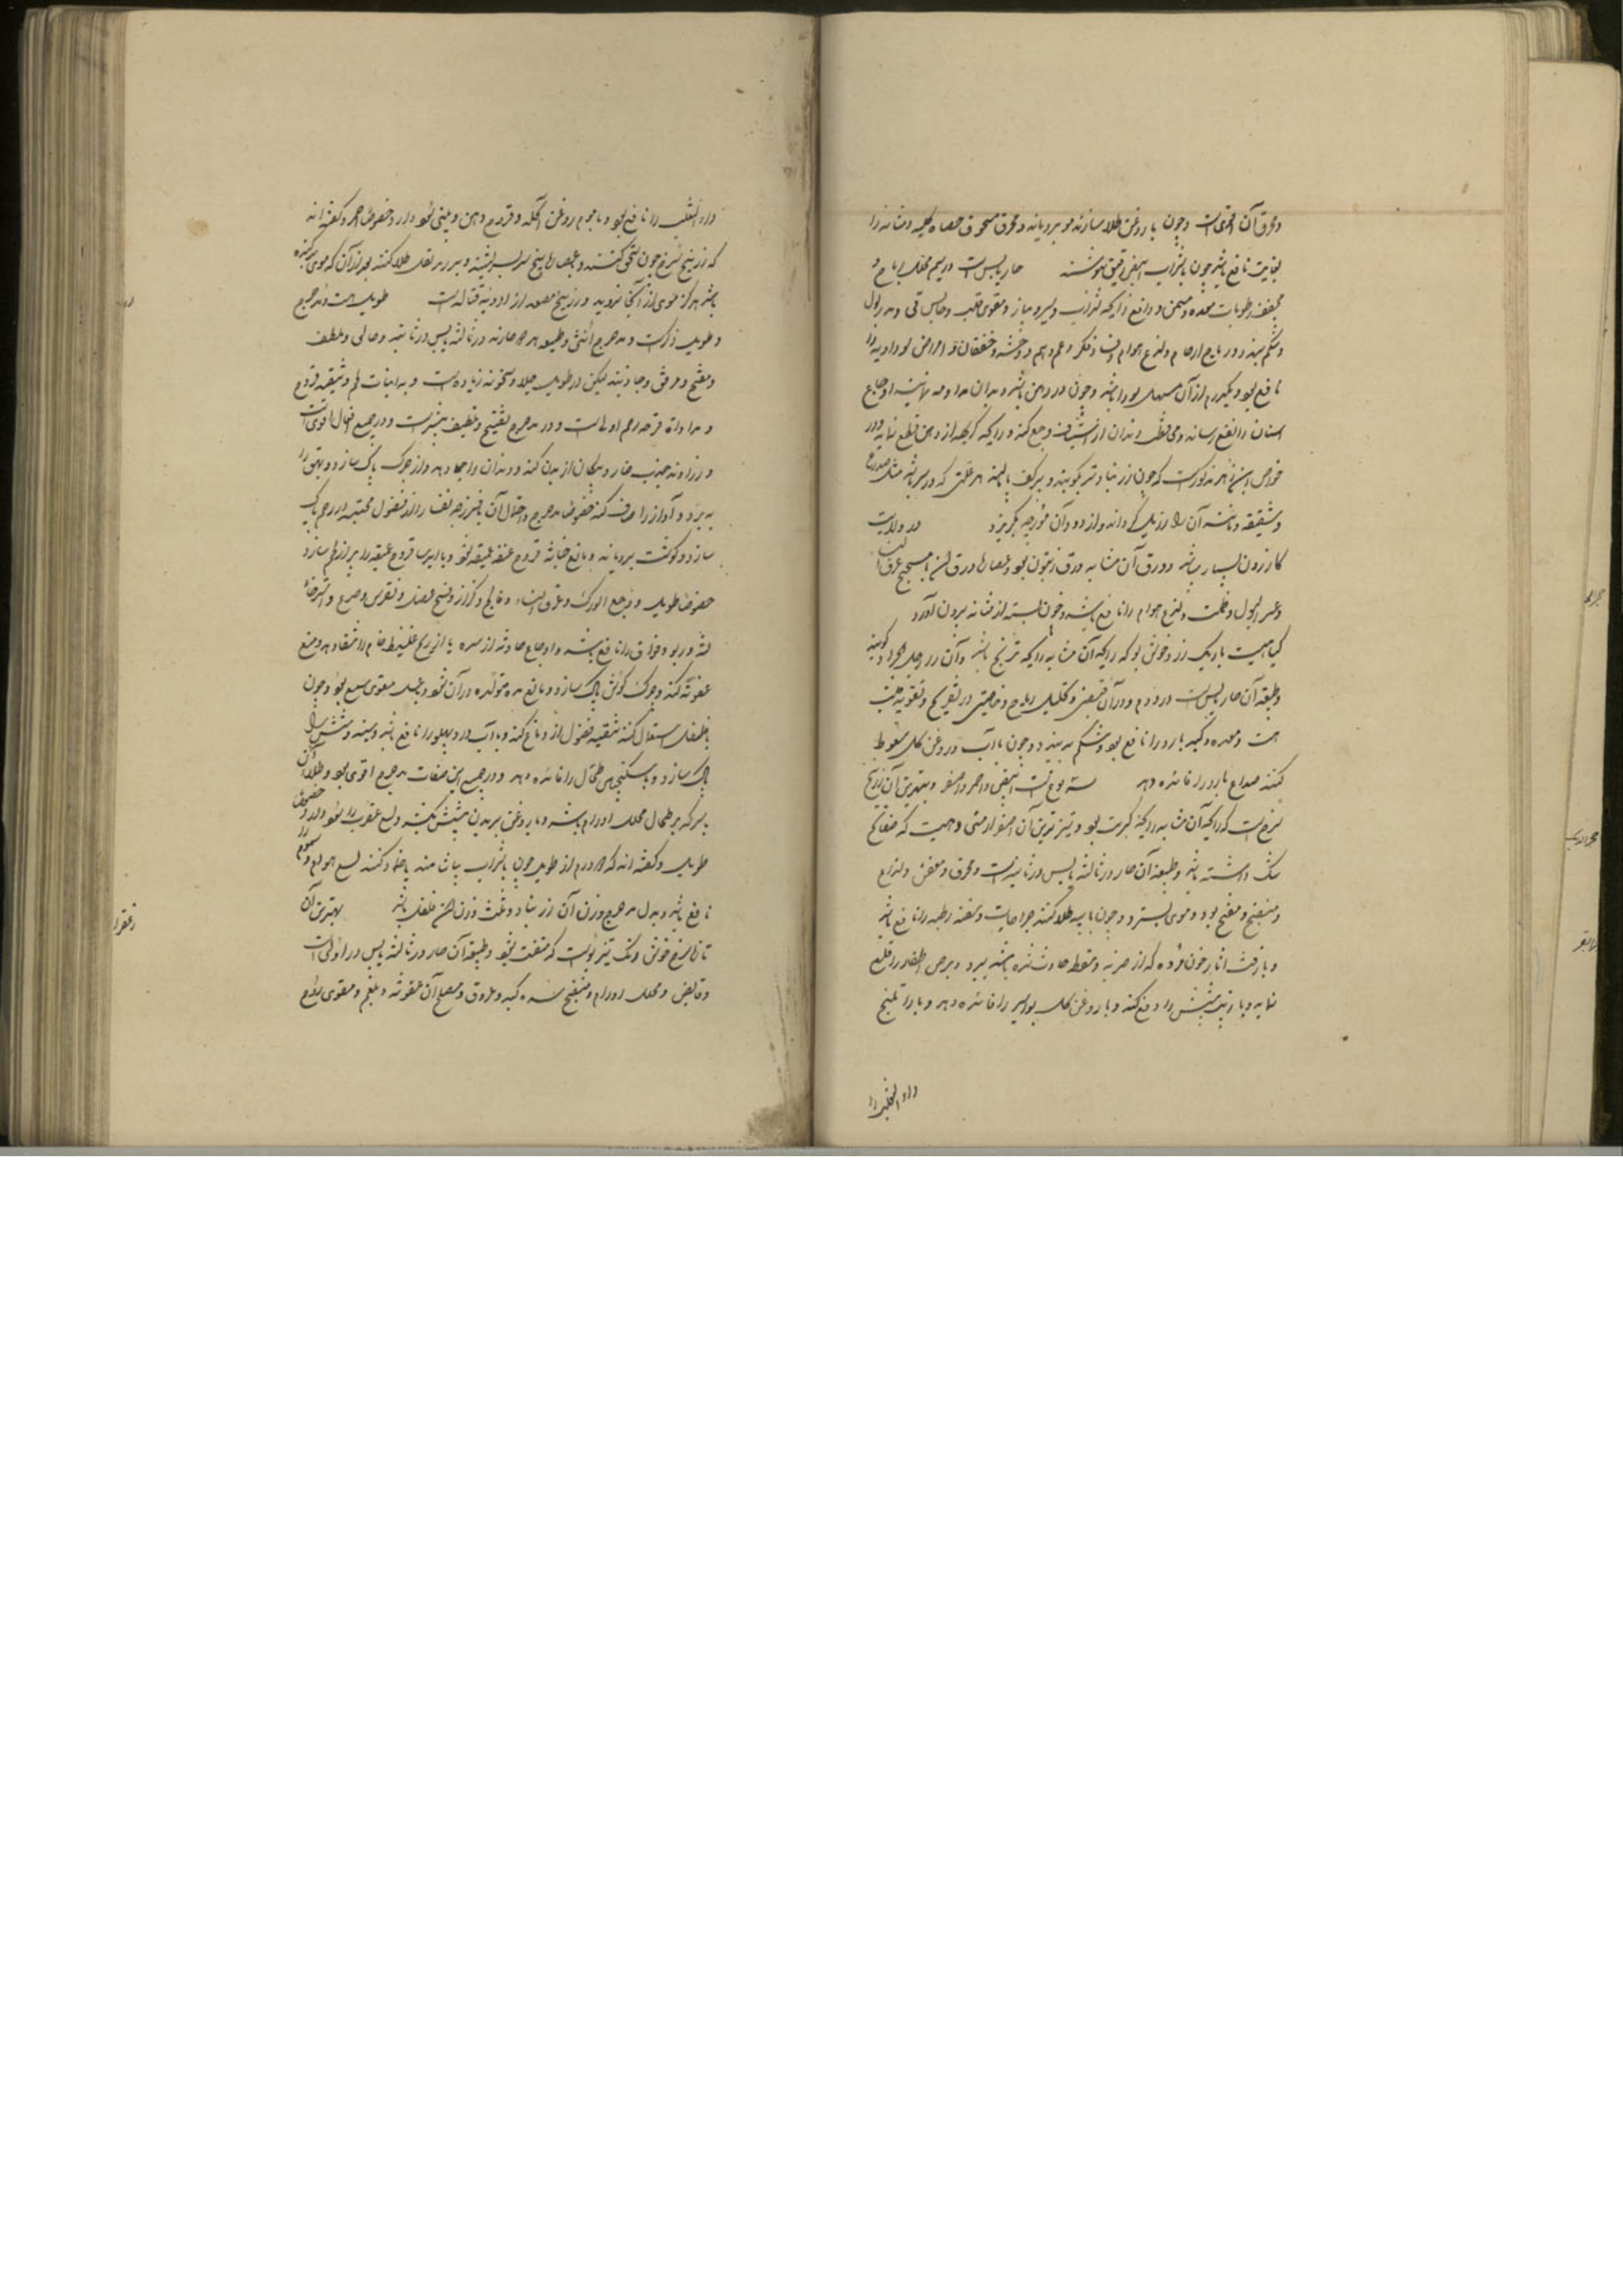 ومحرق آن اقوی است و چون با روغن طلا سازند مو برویاند و محرق مسحوق حصاه کلیه و مثانه را
بغایت نافع باشد چون با شراب ابیض رقیق بنوشند حار یابس است در سیم محلل ریاح و
مجفف رطوبات معده و مسمن و دافع رایحه شراب و سیر و پیاز و مقوی قلب و حابس قی و مدر بول
و شکم ببندد و ریاح ارحام و لذع هوام و فساد فکر و غم و هم و وحشه و خفقان و امراض سوداویه را
نافع بود و یکدرم از آن مسهل سودا باشد و چون در دهن باشد و بدان مداومه نمایند اوجاع
اسنان را نفع رساند و محافظت دندان از وجع کند و رایحه کریهه از دهن قطع نماید و در
خواص ابن زهر مذکور است که چون زرنباد تر بکوبند و بر کف پا بمالند هر علتی که در سر باشد مثل صداع
و شقیقه و مانند آن را زایل گرداند و از دود آن مورچه بگریزد در ولایت
کازرون بسیار میباشد و ورق آن مشابه ورق زیتون بود و عصاره ورق
و عسر البول و لذع هوام را نافع باشد و خون بسته از مثانه بیرون آورد
گیاهیست باریک زرد خوش بو که رایحه آن مشابه رایحه ترنج باشد و آن را رجل الجراد گویند
و طبیعة آن حار یابس است در دوم و در آن قبض و تحلیل ریاح و خاصیتی در تفریح و تقویه قلب
هست و معده و کبد بارد را نافع بود و شکم ببندد و چون با آب و روغن گل سعوط
کنند صداع بارد را فائده دهد سه نوع است ابیض و احمر و اصفر و بهترین آن زرنیخ
سرخ است که رایحه آن مشابه رایحه کبریت بود و تیزترین آن اصفر ارمنی و هیست که صفایح
داشته باشد و طبیعة آن حار در ثالثه یابس در ثانیه است و محرق و معفن و لذاع
و منضج و مفتح بود و موی بسترد و چون با پیه طلا کنند جراحات و سعفه رطبه را نافع باشد
و با زفت اثار خون مرده که از ضربه و سقطه حادث شده باشد ببرد و برص اظفار را قلع
نماید و با زیت شپش را دفع کند و با روغن گل بواسیر را فائده دهد و با راتینج
داء الثعلب را
داء الثعلب را نافع بود و با موم روغن آکله و قروح دهن و بینی سود دارد خصوصا احمر و گفته اند
که زرنیخ سرخ چون سحق کنند و بعصاره بنج بسرشند و بر زیر بغل طلا کنند بعد از آن که موی برکنده
باشند هرگز موی از آنجا نروید و زرنیخ مصعد از ادویه قتاله است طویل است و مدحرج
و طویل ذکر است و مدحرج انثی و طبیعة هر دو حار در ثالثه یابس در ثانیه و جالی و ملطف
و مفتح و مرقق و جاذبند لیکن در طویل جلا و سخونه زیاده است و به انبات لحم و تنقیه قروح
و مداواة قرحه رحم اولی است و در مدحرج تفتیح و تلطیف بیشتر است و در جمیع افعال اقوی است
و زراوند جذب خار و پیکان از بدن کند و دندان را جلا دهد و از چرک پاک سازد و بهق را
ببرد و آواز را صاف کند خصوصا مدحرج و احتمال آن بفرزجه نفسا را از فضول محتبسه در رحم پاک
سازد و گوشت برویاند و مانع خباثه قروح عفنه عمیقه بود و با ایرسا قروح عمیقه را پر از لحم سازد
خصوصا طویل و وجع الورک و عرق النساء و فالج و کزاز و فسخ عضل و نقرس و صرع و استرخاء
لثه و ربو و فواق را نافع باشد و اوجاع حادثه از سده یا از ریح غلیظ خام را شفا دهد و منع
عفونه کند و چرک گوش پاک سازد و مانع مده متولده در آن شود و بعسل مقوی سمع بود و چون
با فلفل استعمال کنند تنقیه فضول از دماغ کند و با آب درد پهلو را نافع باشد و سینه و شش را
پاک سازد و با سکنجبین طحال را فائده دهد و در جمیع این صفات مدحرج اقوی بود و طلاء آن
با سرکه بر طحال محلل اورام باشد و با روغن بر بدن شپش بکشد و لسع عقرب را سود دارد خصوصا
طویل و گفته اند که دو درم از طویل چون با شراب بیاشامند یا ضماد کنند لسع هوام و سموم را
نافع باشد و بدل مدحرج وزن آن زرنباد و ثلث وزن آن فلفل باشد بهترین آن
تازه سرخ خوش رنگ تیز بوست که متفتت نبود و طبیعة آن حار در ثالثه یابس در اولی است
و قابض و محلل اورام و مفتح سده کبد و عروق و مصلح آن عفونه و بلغم و مقوی روح
زعفرا